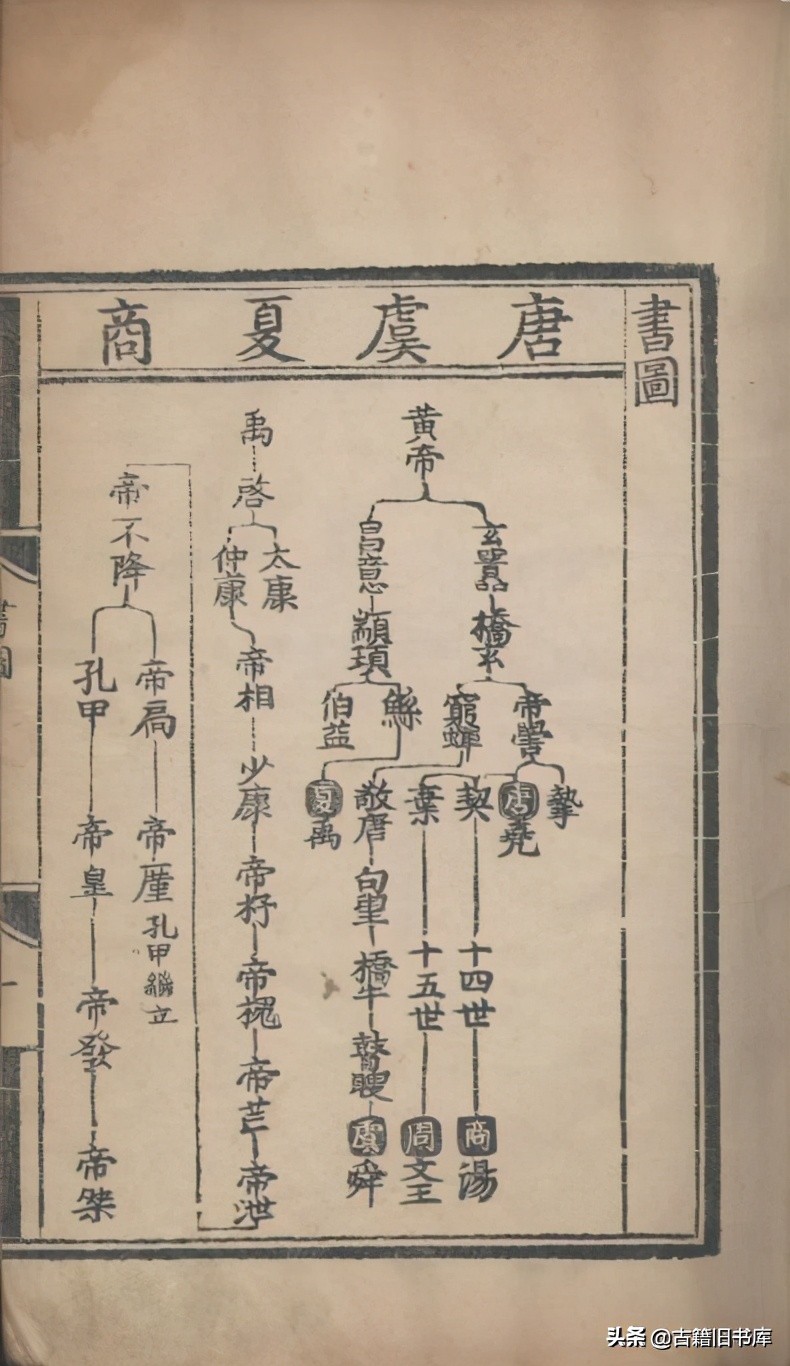 書圖
唐虞夏商
黃帝
玄囂
昌意
橋玄
顓頊
帝嚳
窮蟬
鯀
伯益
摯
唐堯
契
棄
敬唐
夏禹
十四世
十五世
句
橋牛
瞽瞍
商湯
周文王
虞舜
禹
啓
太康
仲康
帝相
少康
帝杼
帝槐
帝芒
帝泄
帝不降
帝扃
孔甲
帝廑
孔甲繼立
帝皇
帝發
帝桀
書圖
一
头条 @古籍旧书库